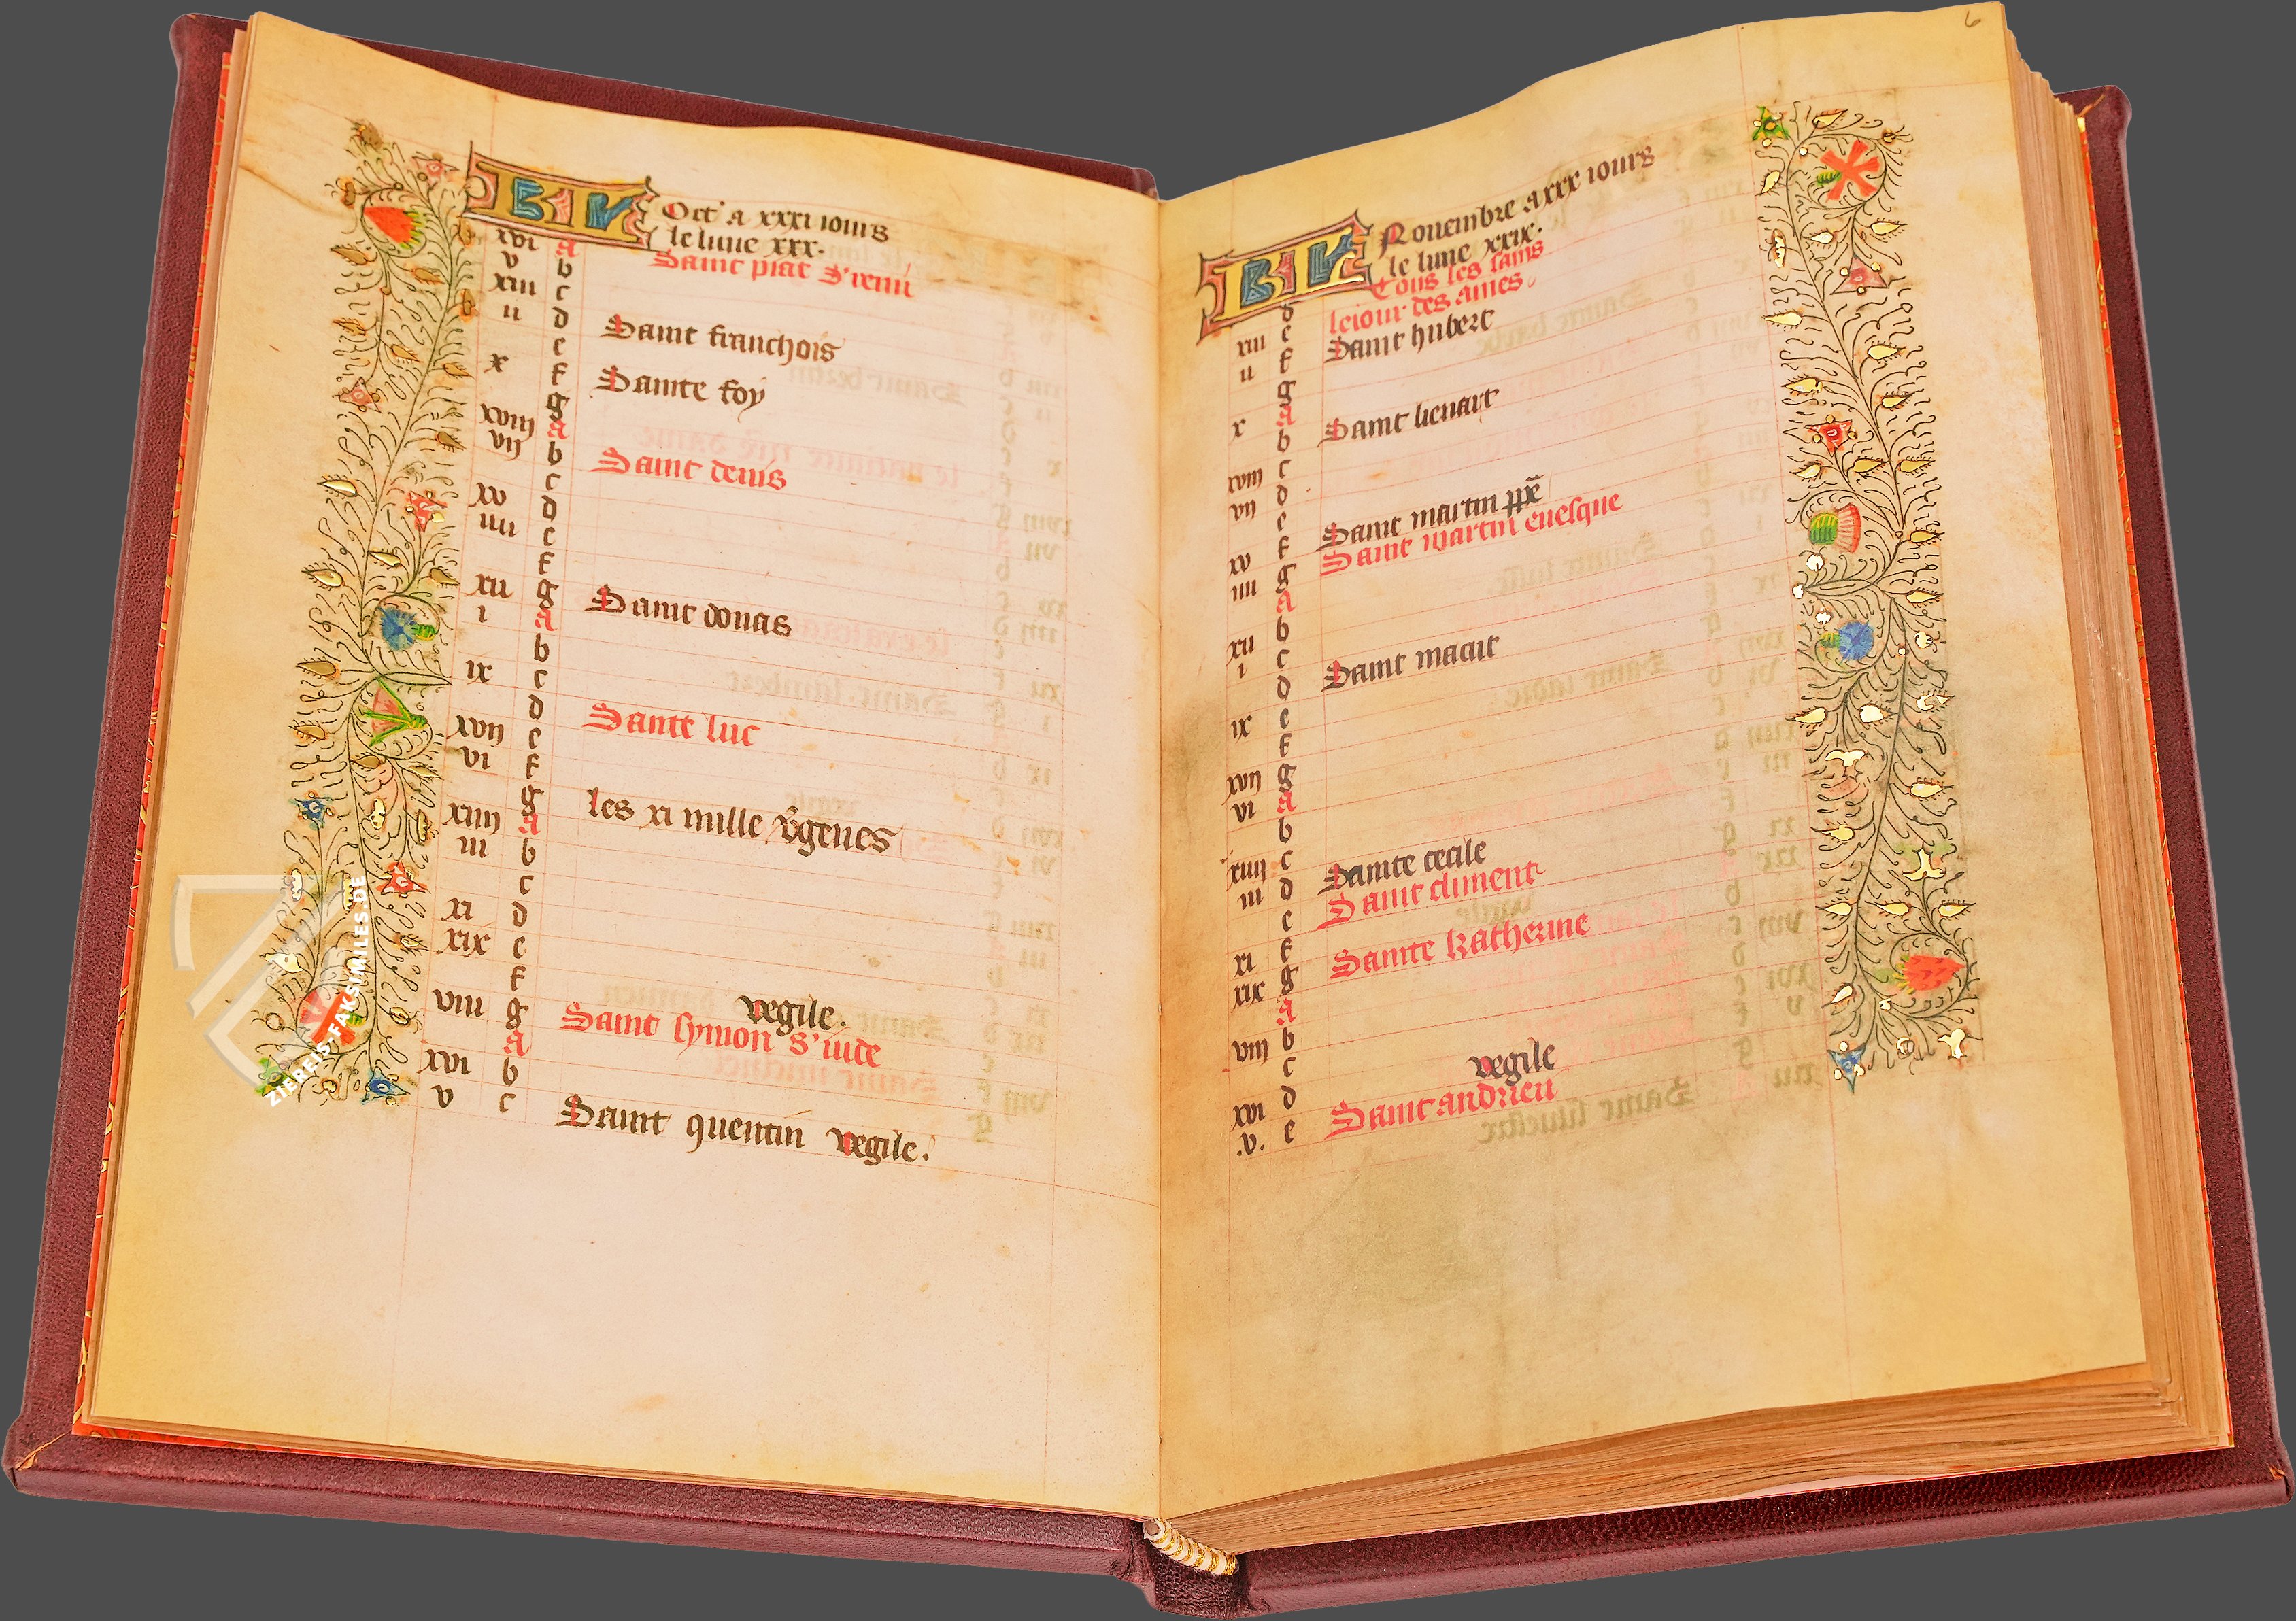 KL Oct' a xxxi iours
le lune xxx.
xvi a Saint piat S' remi
v b
xiii c
ii d Saint franchois
e
x f Sainte foy
g
xviii a
vii b Saint denis
c
xv d
iiii e
f
xii g Saint donas
i a
b
ix c
d Saint luc
xvii e
vi f
g les xi mille v̄genes
xiiii a
iii b
c
xi d
xix e
f vegile.
viii g Saint symon S' iude
a
xvi b
v c Saint quentin vegile.
ZIEREIS-FAKSIMILES.DE
6
KL Nouembre a xxx iours
le lune xxix.
Tous les sains
d le iour des ames.
xiii e Saint hubert
ii f
g
x a Saint lienart
b
xviii c
vii d
e Saint martin pp̄e
xv f Saint martin euesque
iiii g
a
xii b
i c Saint maciit
d
ix e
f
xvii g
vi a
b
xiiii c Sainte cecile
iii d Saint climent
e
xi f Sainte katherine
xix g
a
viii b
c vegile
xvi d Saint andrieu
.v. e